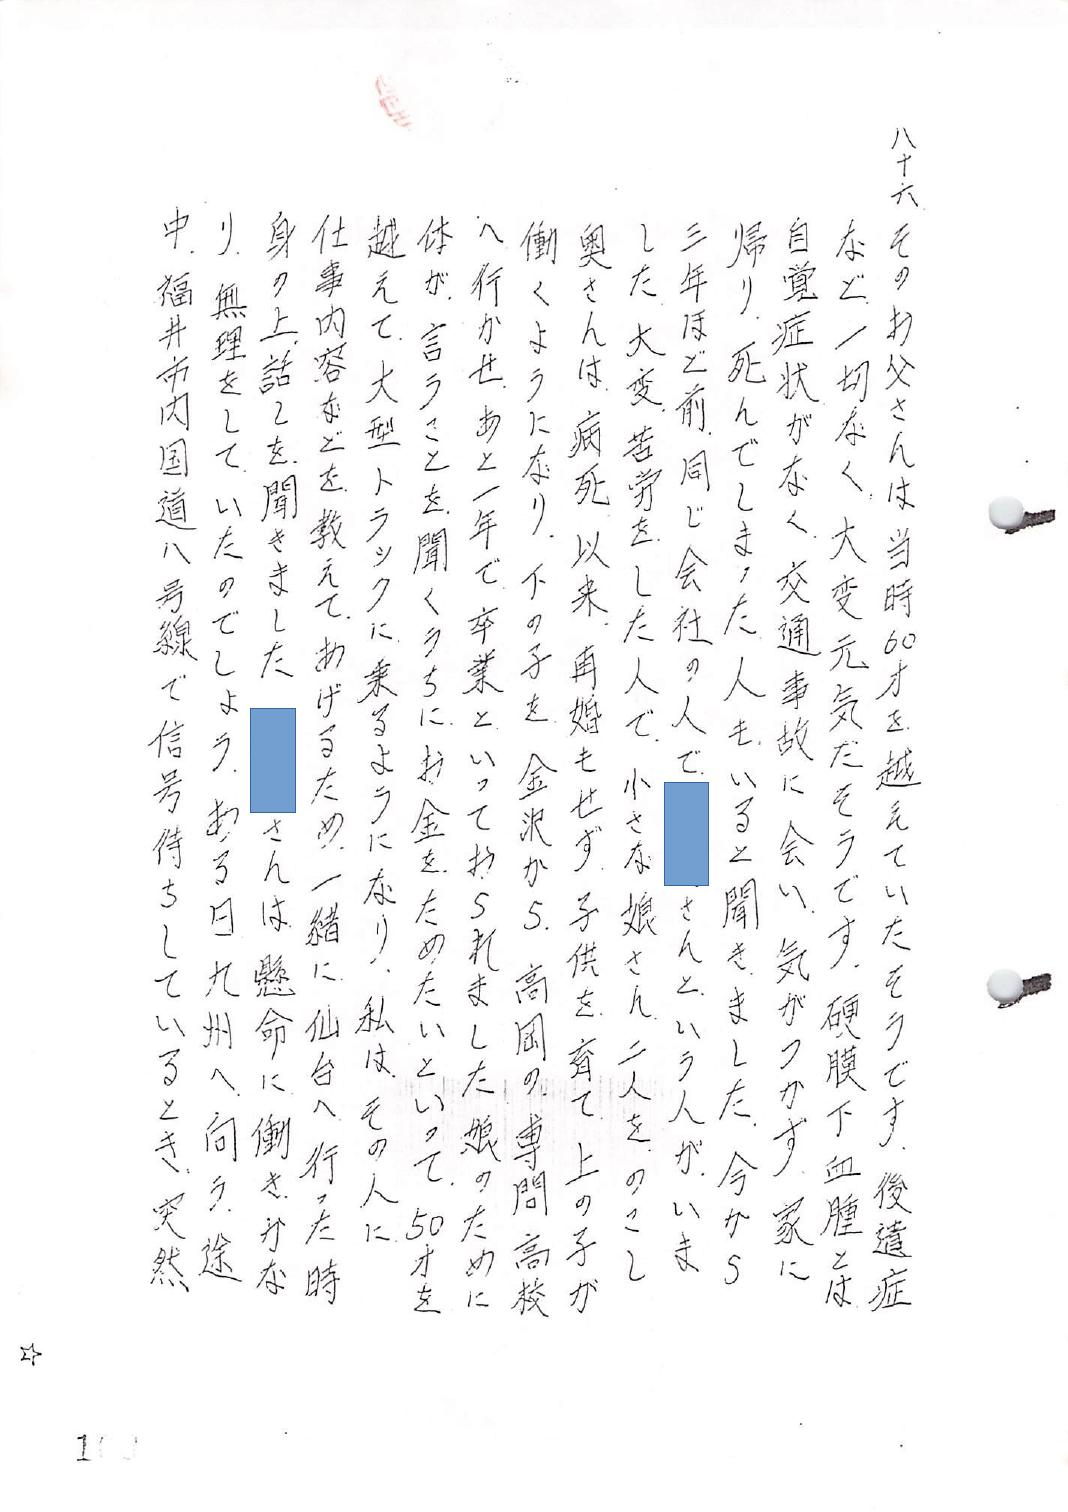 八十六
そのお父さんは当時60才を越えていたそうです、後遺症
など一切なく、大変元気だそうです、硬膜下血腫とは
自覚症状がなく、交通事故に会い、気がつかず、家に
帰り、死んでしまった人も、いると聞きました、今から
三年ほど前、同じ会社の人で、さんと、いう人が、いま
した、大変、苦労をした人で、小さな娘さん二人を、のこし
奥さんは、病死、以来、再婚もせず、子供を、育て、上の子が
働くようになり、下の子を、金沢から、高岡の専問高校
へ、行かせ、あと一年で卒業といっておられました、娘のために
体が、言うことを、聞くうちに、お金をためたいといって、50才を
越えて、大型トラックに、乗るようになり、私は、その人に
仕事内容などを、教えて、あげるため、一緒に、仙台へ、行った時
身の上話しを、聞きました、さんは、懸命に、働き、かな
り、無理をして、いたのでしょう、ある日、九州へ、向う、途
中、福井市内国道八号線で信号待ちしているとき、突然
☆
1